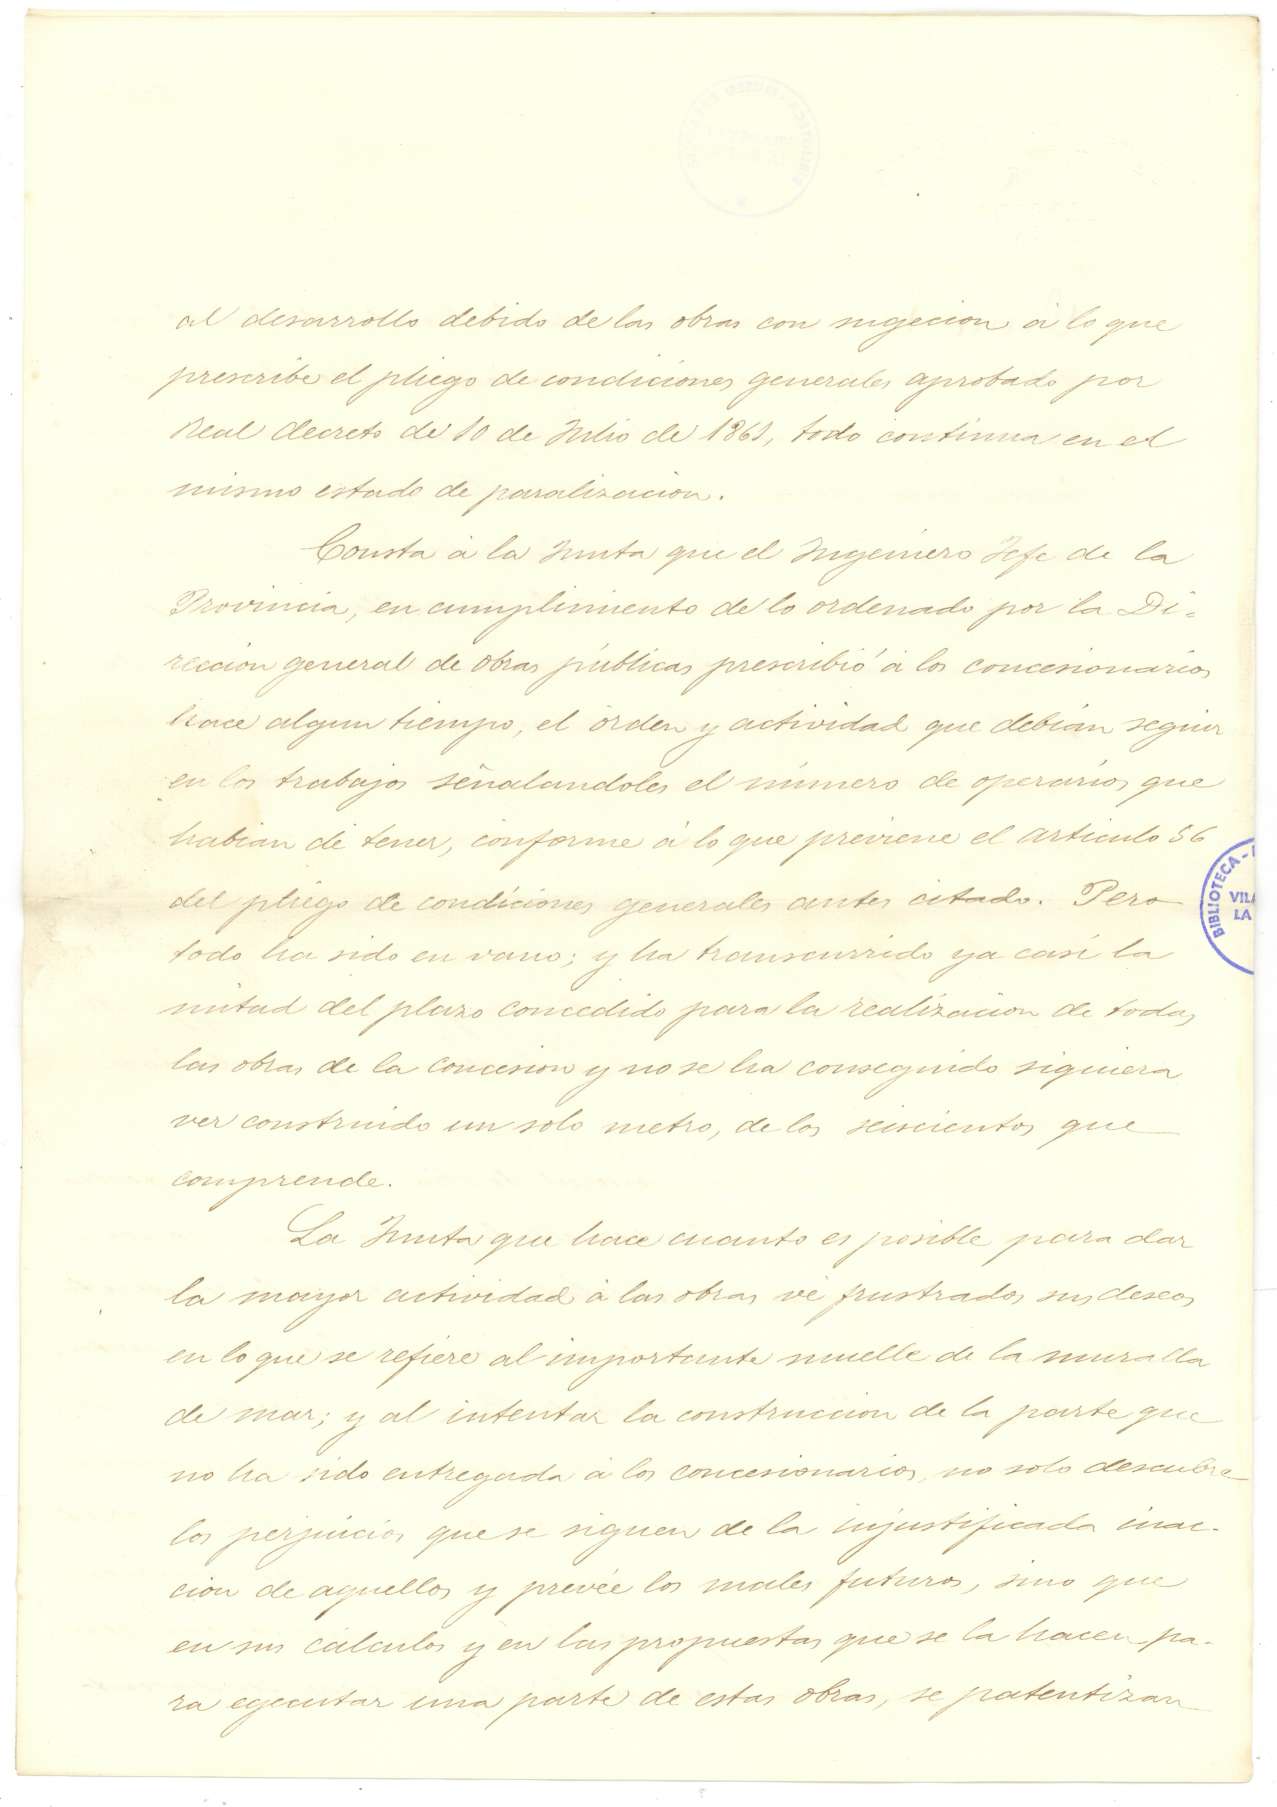 al desarrollo debido de las obras con sugecion á lo que
prescribe el pliego de condiciones generales aprobado por
Real decreto de 10 de Julio de 1861, todo continua en el
mismo estado de paralizacion.
Consta á la Junta que el Ingeniero Jefe de la
Provincia, en cumplimiento de lo ordenado por la Di-
reccion general de obras públicas prescribió á los concesionarios
hace algun tiempo, el órden y actividad que debian seguir
en los trabajos señalandoles el número de operarios que
habian de tener, conforme á lo que previene el articulo 56
del pliego de condiciones generales antes citado. Pero
todo ha sido en vano; y ha transcurrido ya casi la
mitad del plazo concedido para la realizacion de todas
las obras de la concesion y no se ha conseguido siquiera
ver construido un solo metro, de los seiscientos que
comprende.
La Junta que hace cuanto es posible para dar
la mayor actividad á las obras vé frustrados sus deseos
en lo que se refiere al importante muelle de la muralla
de mar; y al intentar la construccion de la parte que
no ha sido entregada á los concesionarios, no solo descubre
los perjuicios que se siguen de la injustificada inac-
cion de aquellos y prevée los males futuros, sino que
en sus cálculos y en las propuestas que se la hacen pa-
ra egecutar una parte de estas obras, se patentizan
BIBLIOTECA -
VILA
LA